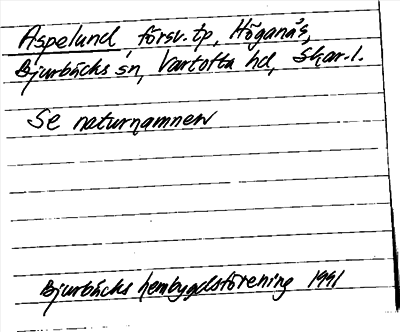 Aspelund, försv. tp, Höganäs,
Bjurbäcks sn, Vartofta hd, Skar. l.
Se naturnamnen
Bjurbäcks hembygdsförening 1991